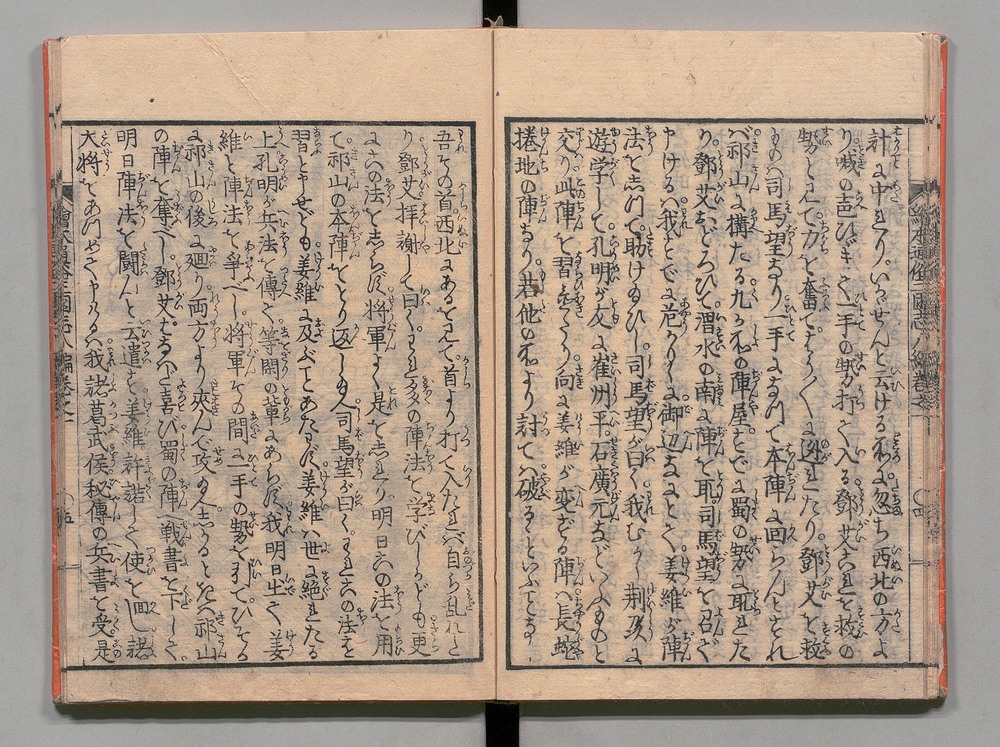 計に中れり。いかゞせんと云ける所に忽ち西北の方よ
り喊の声ひゞきて一手の勢打て入る鄧艾これを救の
勢とみて力を奮てたゝかひ
もの八司馬望なり一手になつて本陣に回らんとすれ
バ祁山に構たる九か所の陣屋ことごとく蜀の勢に取れた
り。鄧艾おどろひて渭水の南に陣を取司馬望を召て
申けるハ我すでに危かりしに御辺なにとて姜維が陣
法をしつて助けたまひし司馬望が曰く我むかし荊州に
遊学して孔明が友に崔州平石廣元などいふものと
交り此陣を習覚たり向に姜維が変ずる陣ハ長蛇
捲地の陣なり若他の所より討てハ破るゝといふことなし
吾その首西北にあるをみて首より打て入たれバ自ら乱れた
り鄧艾拝謝して曰くわれ多の陣法を学びしかども更
にこの法をしらず将軍よく是をしれり明日この法を用
て祁山の本陣をとり返したまへ司馬望が曰くわれこの法を
習と申せども姜維に及ぶことあたはず姜維ハ世に絶たる
上孔明が兵法を傳て等閑の輩にあらず我明日出て姜
維と陣法を爭べし将軍その間に一手の勢を引てひそか
に祁山の後に廻り両方より夾んで攻たまへしかるときハ祁山
の陣を奪べし鄧艾大に喜び蜀の陣へ戦書を下して
明日陣法を闘んと云遣す姜維許諾して使を回し諸
大将をあつめて申けるハ我諸葛武侯秘傳の兵書を受是